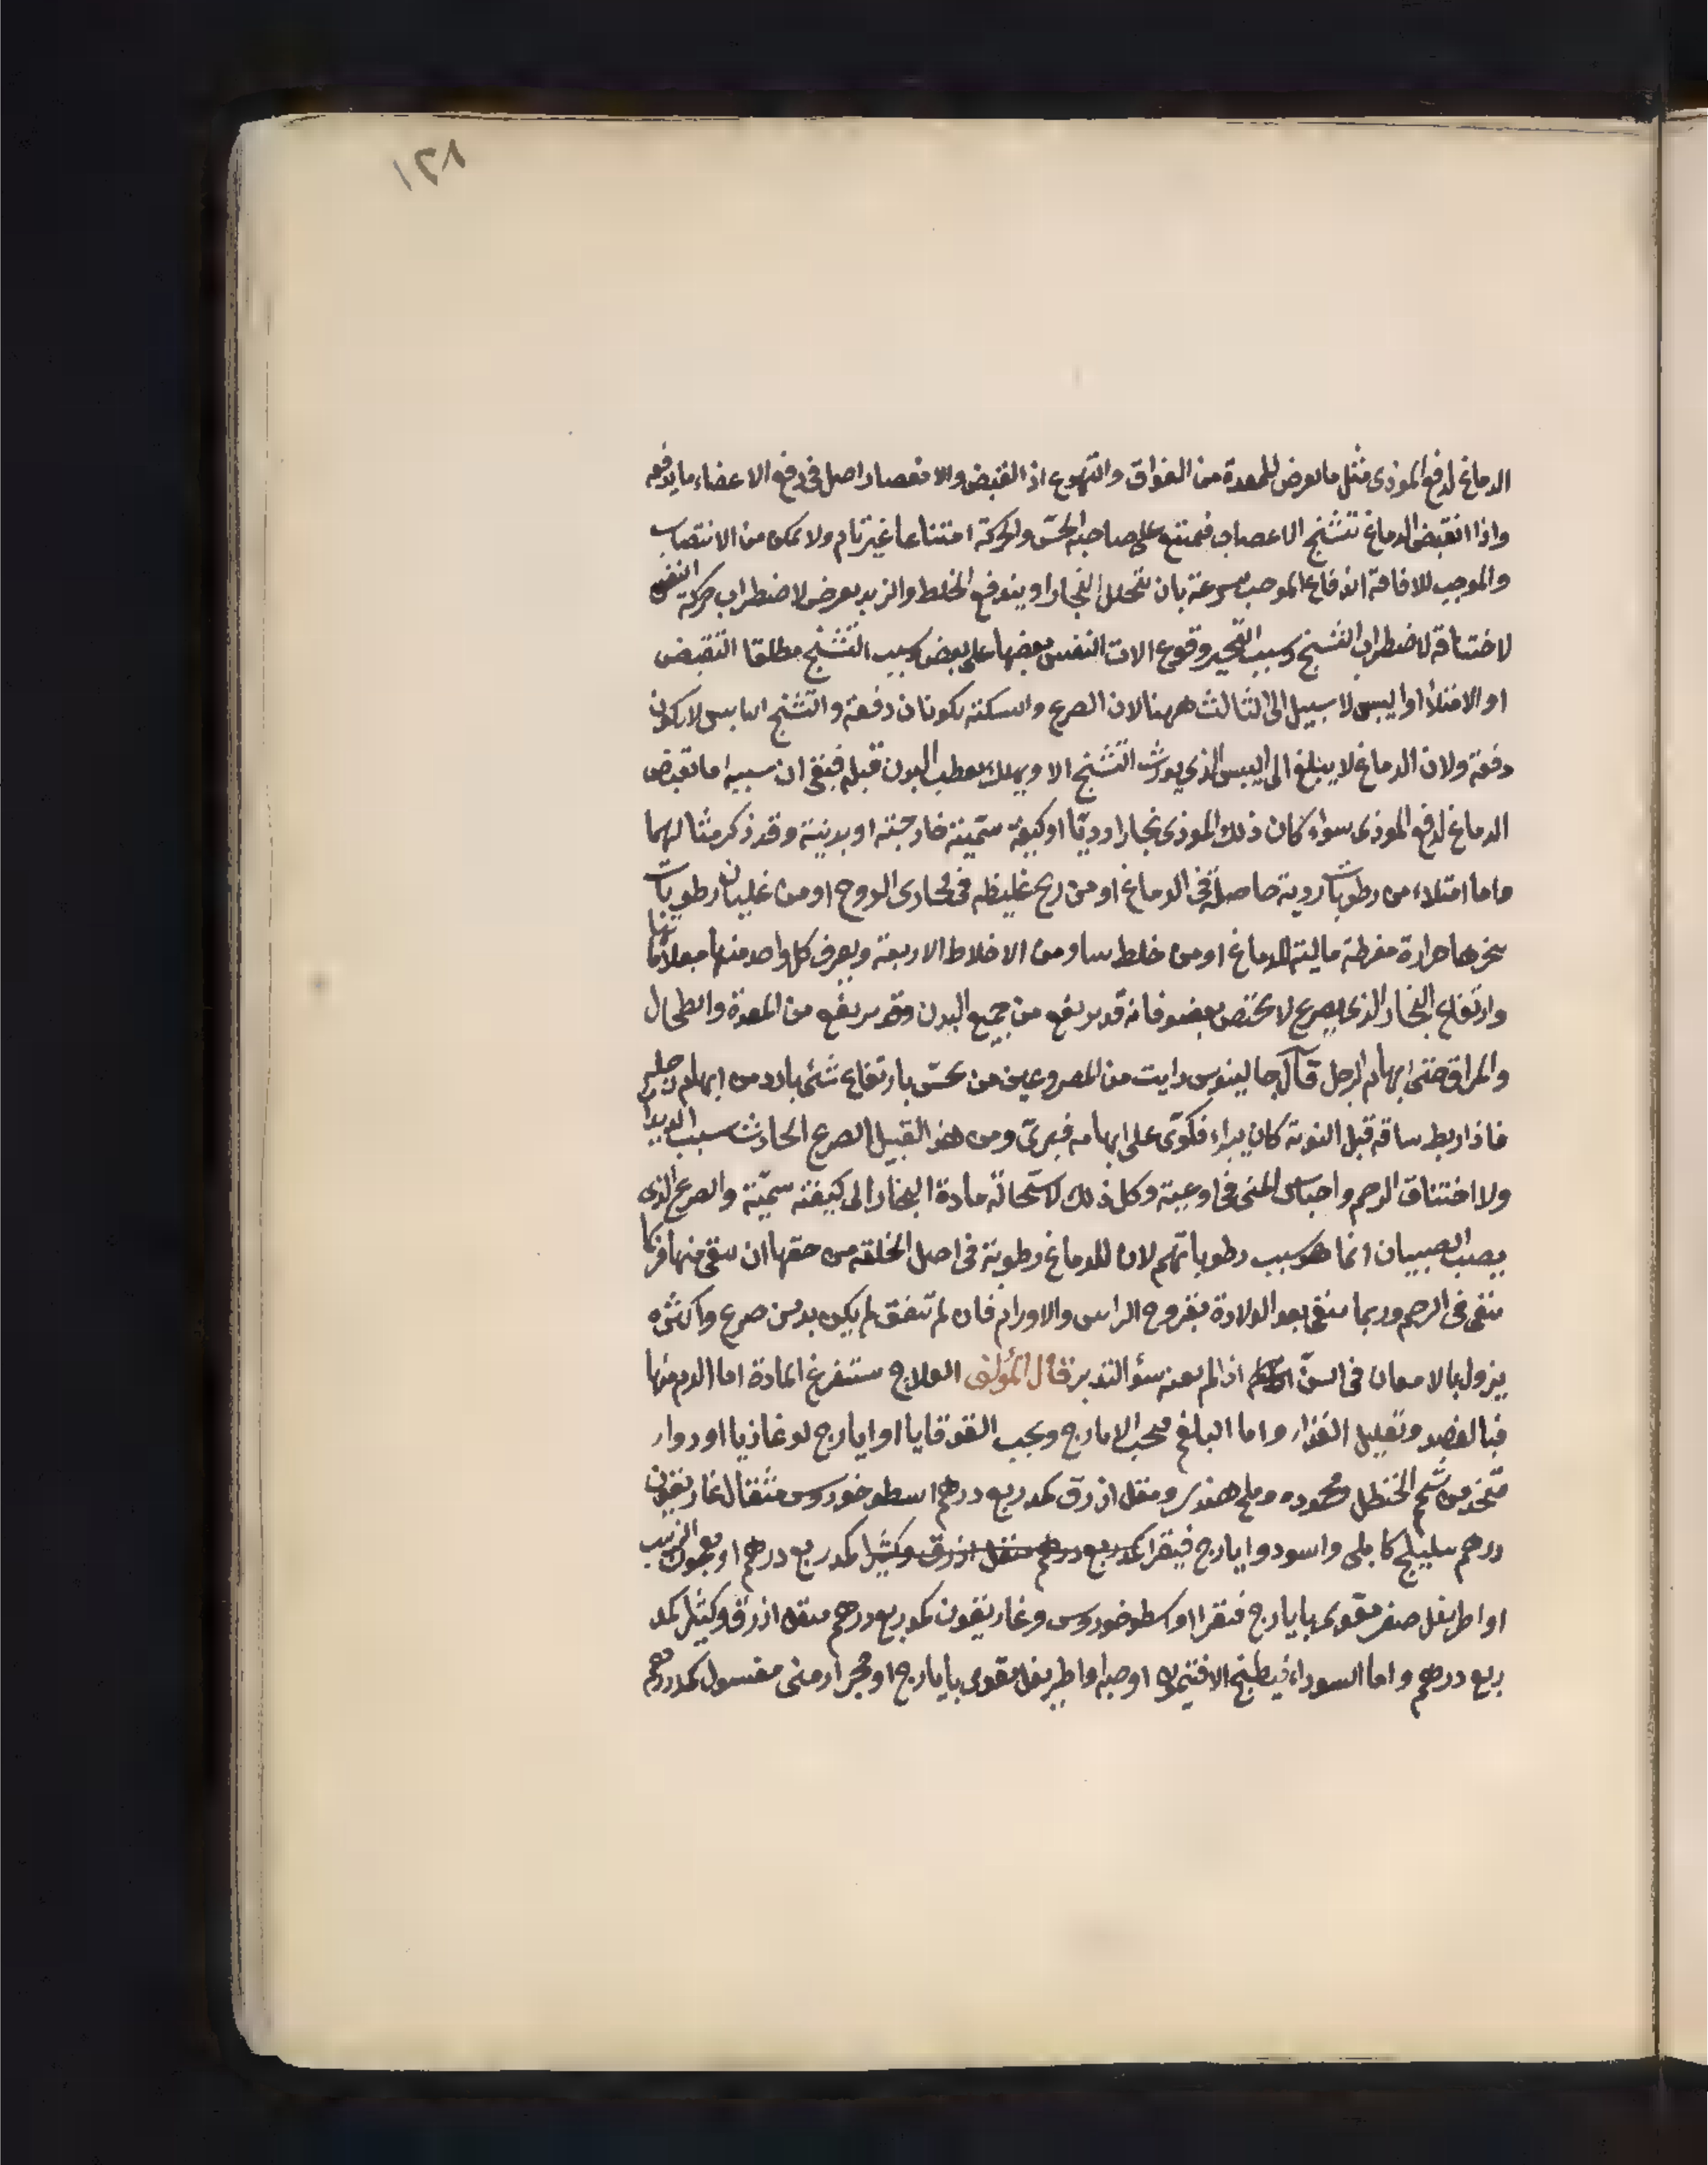 ١٢٨
الدماغ لدفع الموذى مثل ما يعرض للمعدة من الفواق والتهوع اذ القبض والانعصار اصل فى دفع الاعضاء ما يدفعه
واذا انقبض الدماغ تشنج الاعصاب فيمتنع على صاحبه الحسّ والحركة امتناعا غير تام ولا يمكن من الانتصاب
والموجب للافاقة اندفاع الموجب بسرعة بان يتحلل البخار او يندفع الخلط والزبد يعرض لاضطراب حركة النفس
لاختناقه لاضطراب التشنج وسبب وقوع الات التنفس بعضها على بعض وسبب التشنج مطلقا التقبض
او الامتلأ او اليبس لا سبيل الى الثالث ههنا لان الصرع والسكتة يكونان دفعة والتشنج اليابس لا يكون
دفعة ولان الدماغ لا يبلغ الى اليبس الذي يورث التشنج الا ويهلك يعطب البدن قبله فبقى ان سببه اما تقبض
الدماغ لدفع الموذى سواء كان ذلك الموذى بخارا رديّا او كيفية سمّية خارجية او بدنية وقد ذكر مثالهما
واما امتلاء من رطوبات ردية حاصلة فى الدماغ او من ريح غليظه فى مجارى الروح او من غليان رطوبات
بخرها حرارة مفرطة مالية للدماغ او من خلط ساد من الاخلاط الاربعة ويعرف كل واحد منها بعلاماتها
وارتفاع البخار الذى يصرع لا يختص بعضو فانه قد يرتفع من جميع البدن وقد يرتفع من المعدة والطحال
والمراق حتى ابهام الرجل قال جالينوس رايت من المصروعين من يحسّ بارتفاع شئ بارد من ابهام رجليه
فاذا ربط ساقه قبل النوبة كان يبراء فكوّى على ابهامه فبرئ ومن هذا القبيل الصرع الحادث بسبب الديدان
ولا اختناق الرحم واحباس المنى فى اوعيته وكل ذلك لاستحالة مادة البخار الى كيفية سمّية والصرع الذى
يصيب الصبيان انما هو بسبب رطوباتهم لان للدماغ رطوبة فى اصل الخلقه من حقها ان تنقى منها فربما
تنقى فى الرحم وربما تنقى بعد الولادة بقروح الراس والاورام فان لم تتفق لم يكن بد من صرع واكثره
يزول بالامعان فى السنّ اذا لم يعنه سؤ التدبر قال المؤلف العلاج تستفرغ المادة اما الدم منها
فبالفصد وتقليل الغذاء واما البلغم فبحب الايارج وبحب القوقايا او ايارج لوغاذيا او دواء
متخذ من شحم الحنظل ومحموده وملح هندى ومقل ازرق كمد ربع درهم اسطوخودوس مثقال غاريقون
درهم هليلج كابلى واسود وايارج فيقرا كمد ربع درهم مقل ازرق وكثيرا كمد ربع درهم او معجون الزبيب
او اطريفل صغر مقوى بايارج فيقرا او اسطوخودوس وغاريقون كمد ربع درهم مقل ازرق وكثيرا كمد
ربع درهم واما السوداء فبطبخ الافتيمون او حبه او اطريفل مقوى بايارج او حجر ارمنى مغسول كمد درهم